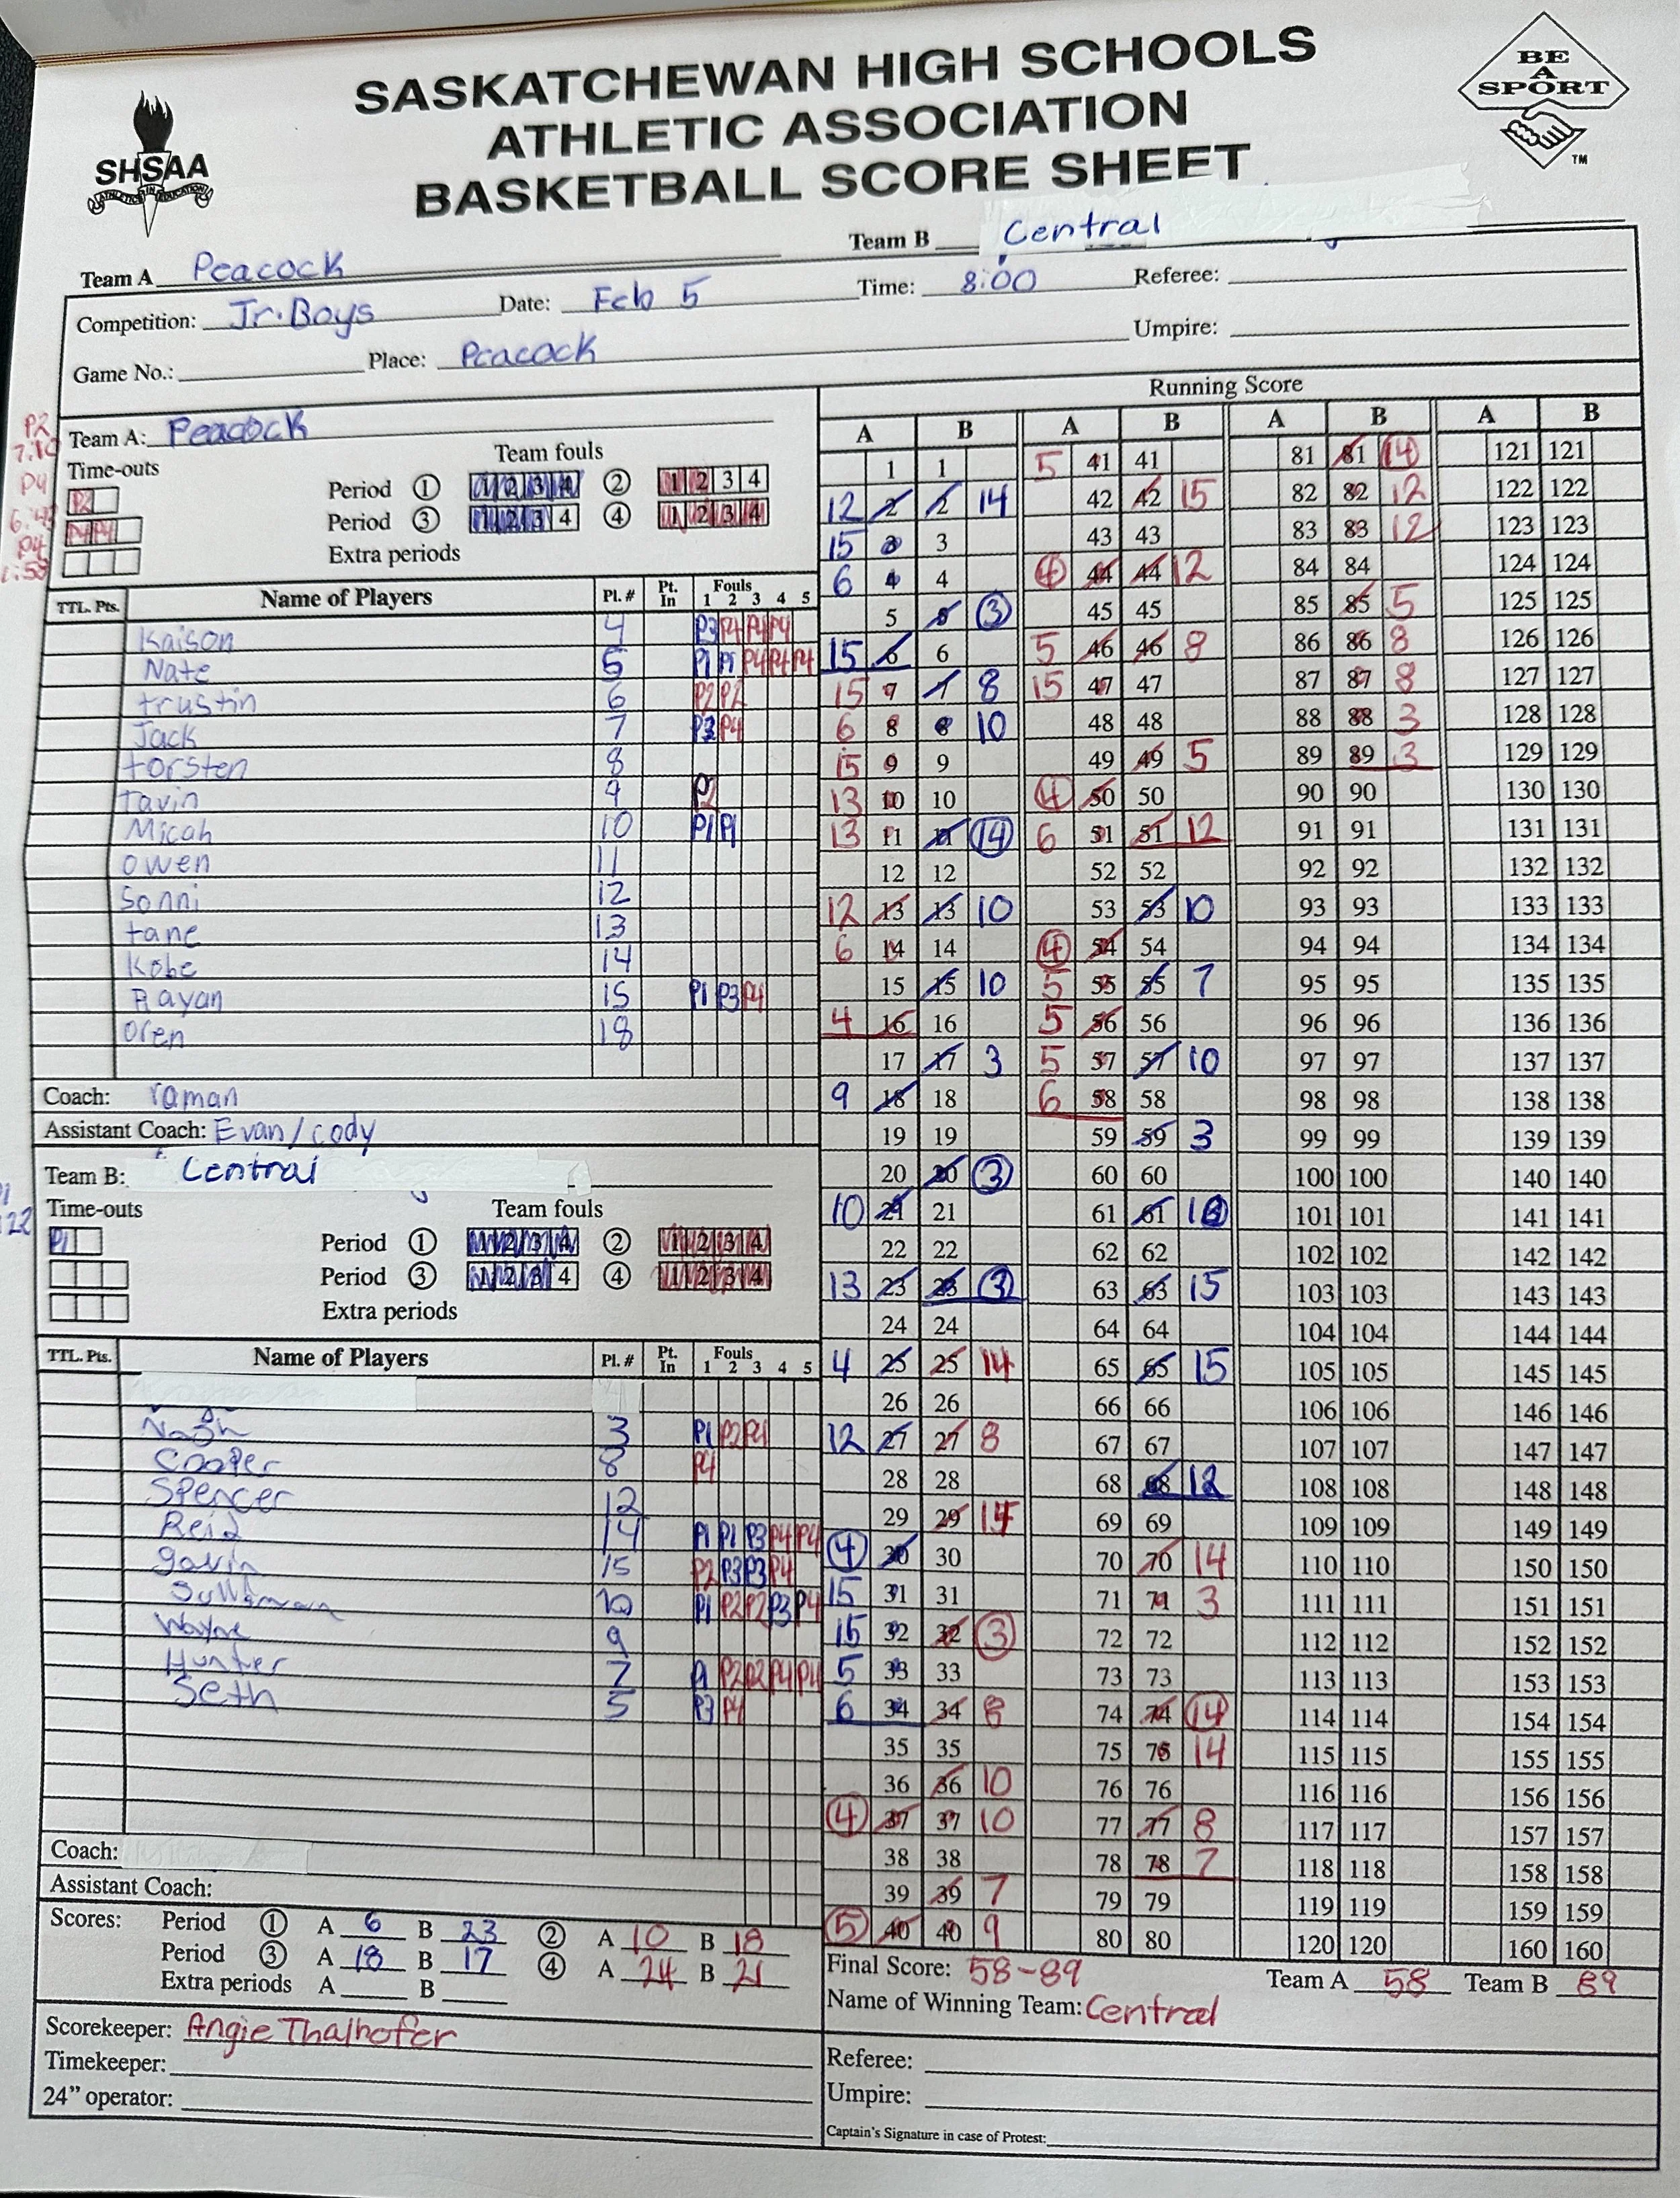 SASKATCHEWAN HIGH SCHOOLS
ATHLETIC ASSOCIATION
BASKETBALL SCORE SHEET
SHSAA
BE
A
SPORT
TM
Team A Peacock Team B Central
Competition: Jr. Boys Date: Feb 5 Time: 8:00 Referee:
Game No.: Place: Peacock Umpire:
Running Score
Team A: Peacock
Time-outs Team fouls
Period 1 1 2 3 4 2 1 2 3 4
Period 3 1 2 3 4 4 1 2 3 4
Extra periods
TTL. Pts. Name of Players Pl. # Pt. In Fouls 1 2 3 4 5
Kaison 4 P3 P4 P4 P4
Nate 5 P1 P1 P4 P4 P4
trustin 6 P2 P2
Jack 7 P3 P4
torsten 8
tavin 9 P2
Micah 10 P1 P1
owen 11
Sonni 12
tane 13
Kobe 14
Rayan 15 P1 P3 P4
oren 18
Coach: raman
Assistant Coach: Evan/cody
Team B: Central
Time-outs Team fouls
P1
Period 1 1 2 3 4 2 1 2 3 4
Period 3 1 2 3 4 4 1 2 3 4
Extra periods
TTL. Pts. Name of Players Pl. # Pt. In Fouls 1 2 3 4 5
Nash 3 P1 P2 P4
Cooper 8 P4
Spencer 12
Reid 14 P1 P1 P3 P4 P4
gavin 15 P2 P3 P3 P4
10 P1 P2 P2 P3 P4
Wayne 9
Hunter 7 P1 P2 P2 P4 P4
Seth 5 P3 P4
Coach:
Assistant Coach:
Scores: Period 1 A 6 B 23 2 A 10 B 18
Period 3 A 18 B 17 4 A 24 B 21
Extra periods A B
Scorekeeper: Angie Thalhofer
Timekeeper:
24” operator:
A B A B A B A B
1 1 5 41 41 81 81 14 121 121
12 2 2 14 42 42 15 82 82 12 122 122
15 3 3 43 43 83 83 12 123 123
6 4 4 4 44 44 12 84 84 124 124
5 5 3 45 45 85 85 5 125 125
15 6 6 5 46 46 8 86 86 8 126 126
15 7 7 8 15 47 47 87 87 8 127 127
6 8 8 10 48 48 88 88 3 128 128
15 9 9 49 49 5 89 89 3 129 129
13 10 10 4 50 50 90 90 130 130
13 11 11 14 6 51 51 12 91 91 131 131
12 12 52 52 92 92 132 132
12 13 13 10 53 53 10 93 93 133 133
6 14 14 4 54 54 94 94 134 134
15 15 10 5 55 55 7 95 95 135 135
4 16 16 5 56 56 96 96 136 136
17 17 3 5 57 57 10 97 97 137 137
9 18 18 6 58 58 98 98 138 138
19 19 59 59 3 99 99 139 139
20 20 3 60 60 100 100 140 140
10 21 21 61 61 101 101 141 141
22 22 62 62 102 102 142 142
13 23 23 3 63 63 15 103 103 143 143
24 24 64 64 104 104 144 144
4 25 25 14 65 65 15 105 105 145 145
26 26 66 66 106 106 146 146
12 27 27 8 67 67 107 107 147 147
28 28 68 68 12 108 108 148 148
29 29 69 69 109 109 149 149
4 30 30 70 70 14 110 110 150 150
15 31 31 71 71 3 111 111 151 151
15 32 32 3 72 72 112 112 152 152
5 33 33 73 73 113 113 153 153
6 34 34 8 74 74 14 114 114 154 154
35 35 75 75 14 115 115 155 155
36 36 10 76 76 116 116 156 156
4 37 37 10 77 77 8 117 117 157 157
38 38 78 78 7 118 118 158 158
39 39 7 79 79 119 119 159 159
5 40 40 9 80 80 120 120 160 160
Final Score: 58-89 Team A 58 Team B 89
Name of Winning Team: Central
Referee:
Umpire:
Captain's Signature in case of Protest: